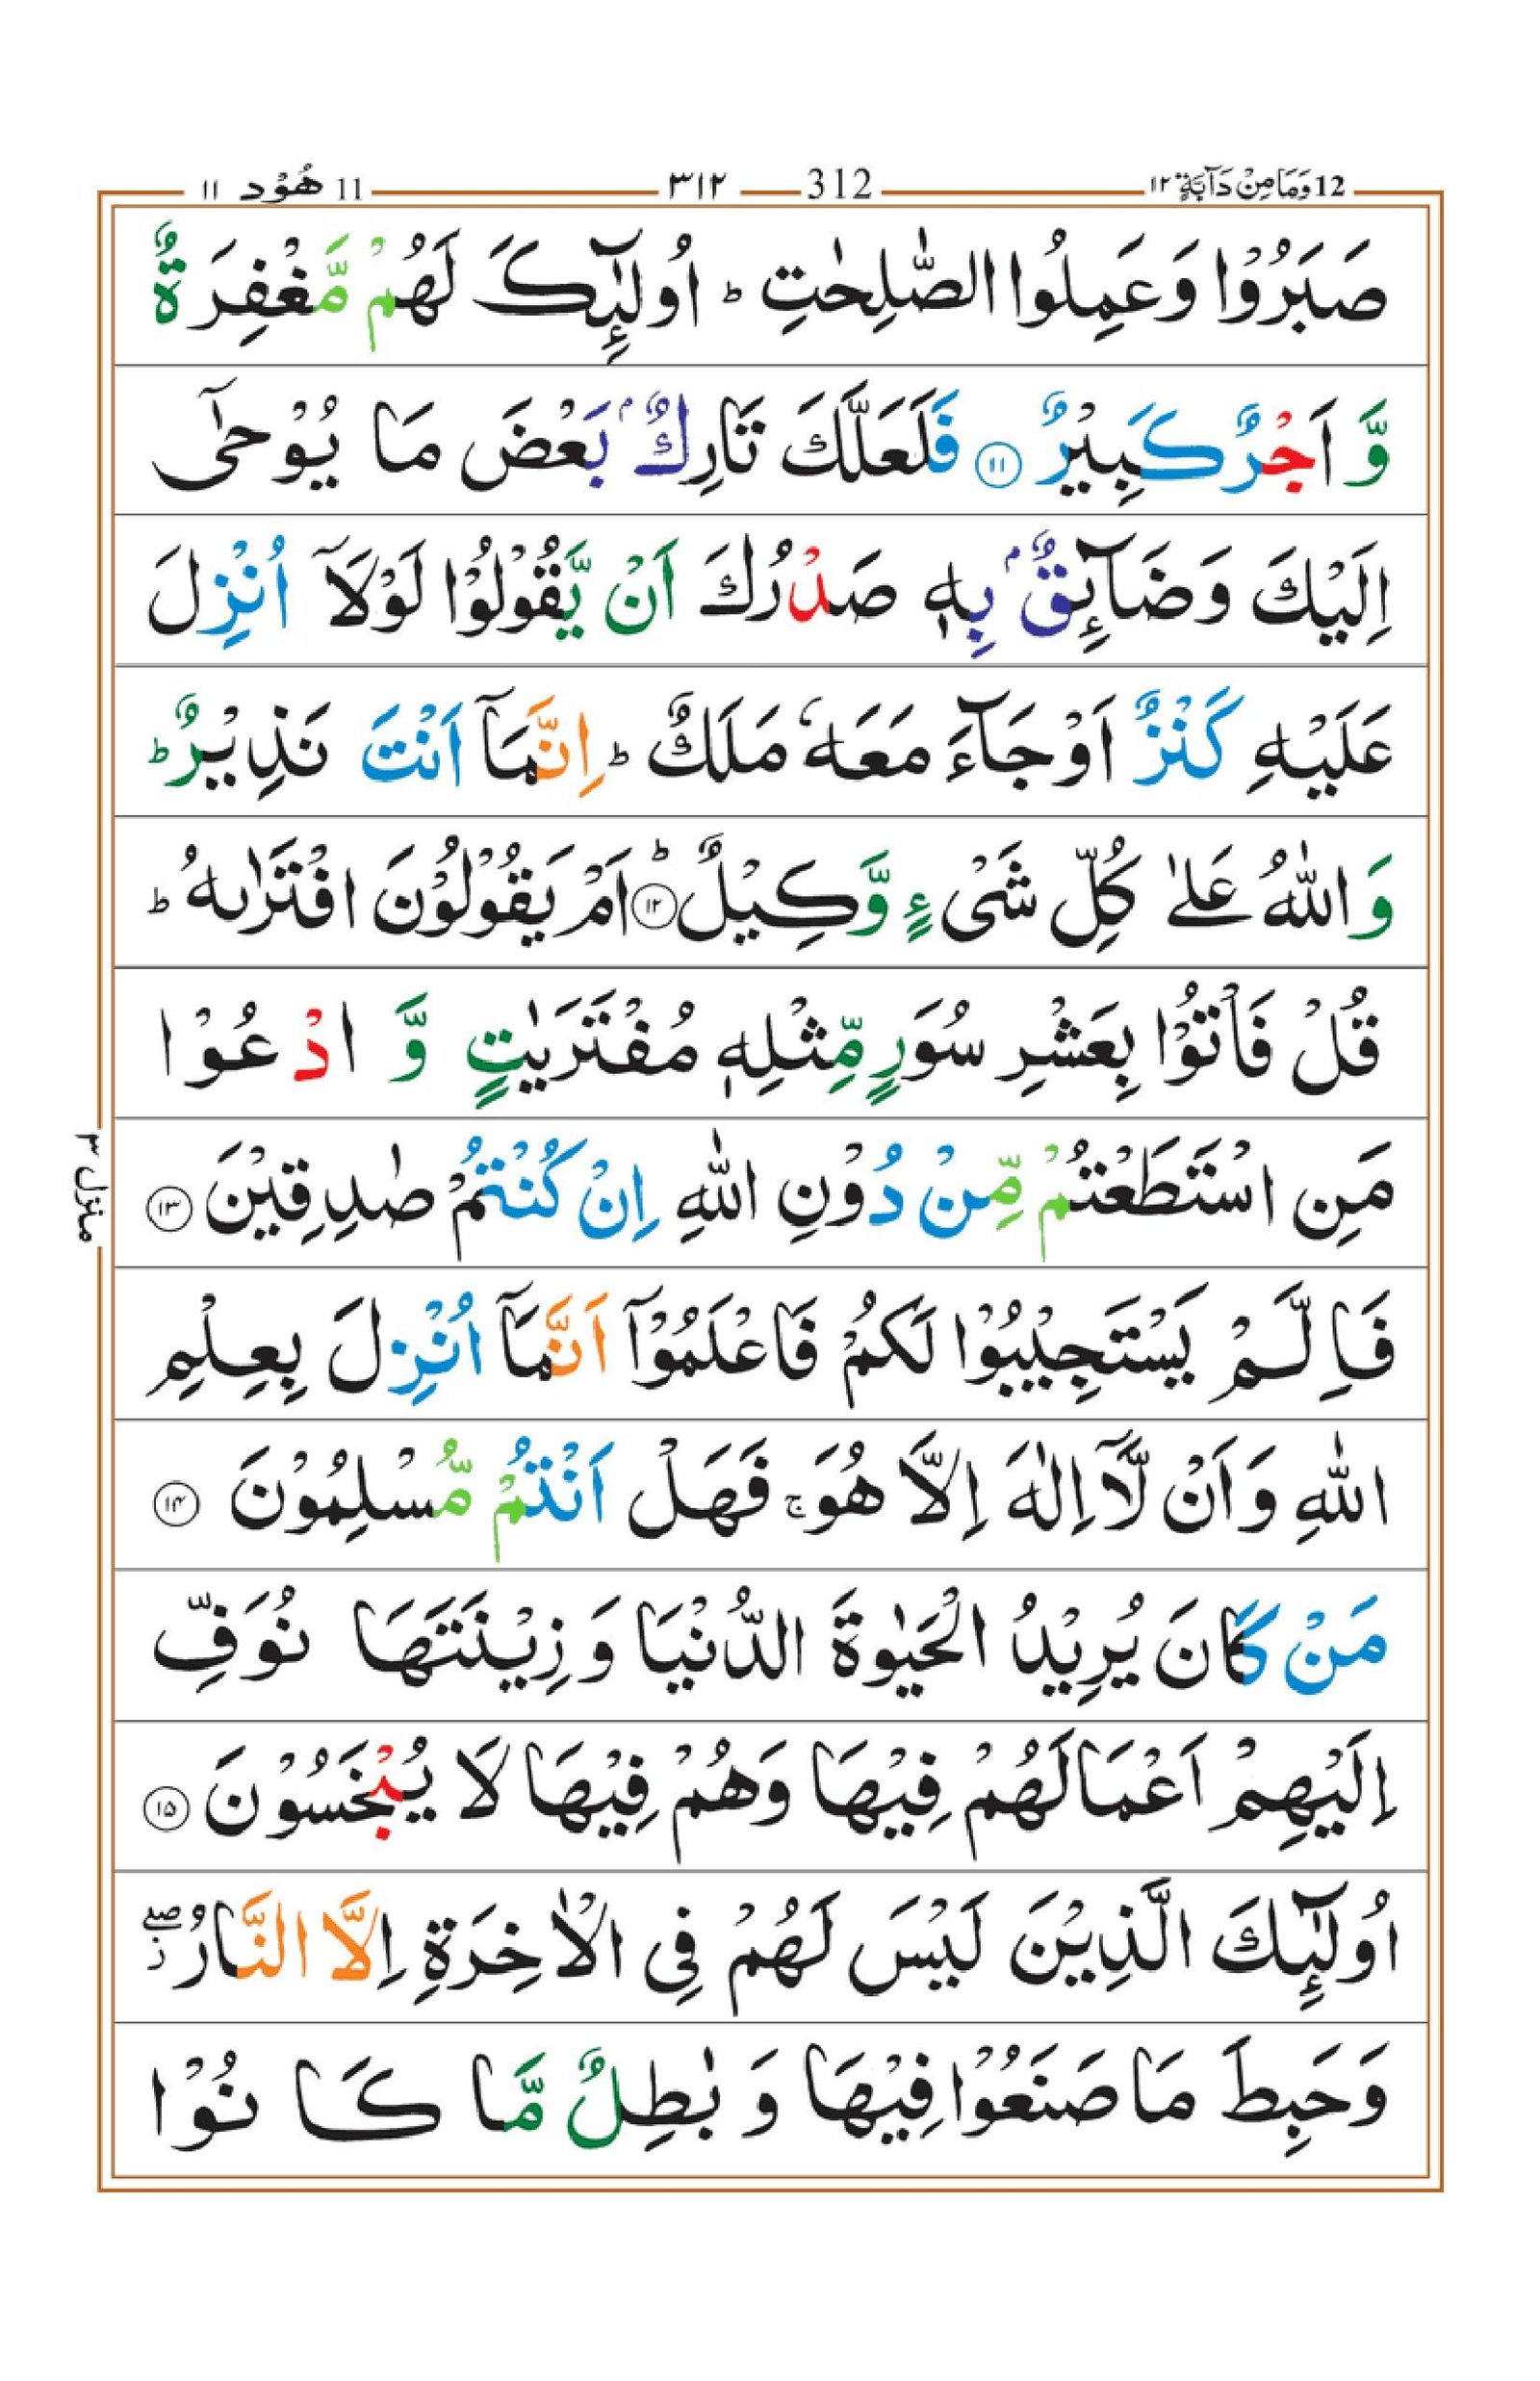 12 وَمَا مِنْ دَآبَّةٍ ١٢ 312 ٣١٢ 11 هُوْد ١١
صَبَرُوْا وَعَمِلُوا الصّٰلِحٰتِ ؕ اُولٰٓئِكَ لَهُمْ مَّغْفِرَةٌ
وَّ اَجْرٌ كَبِيْرٌ ١١ فَلَعَلَّكَ تَارِكٌۢ بَعْضَ مَا يُوْحٰٓى
اِلَيْكَ وَضَآئِقٌۢ بِهٖ صَدْرُكَ اَنْ يَّقُوْلُوْا لَوْلَآ اُنْزِلَ
عَلَيْهِ كَنْزٌ اَوْ جَآءَ مَعَهٗ مَلَكٌ ؕ اِنَّمَآ اَنْتَ نَذِيْرٌ ؕ
وَ اللّٰهُ عَلٰى كُلِّ شَىْءٍ وَّكِيْلٌ ؕ ١٢ اَمْ يَقُوْلُوْنَ افْتَرٰىهُ ؕ
قُلْ فَاْتُوْا بِعَشْرِ سُوَرٍ مِّثْلِهٖ مُفْتَرَيٰتٍ وَّ ادْعُوْا
مَنِ اسْتَطَعْتُمْ مِّنْ دُوْنِ اللّٰهِ اِنْ كُنْتُمْ صٰدِقِيْنَ ١٣
فَاِلَّمْ يَسْتَجِيْبُوْا لَكُمْ فَاعْلَمُوْٓا اَنَّمَآ اُنْزِلَ بِعِلْمِ
اللّٰهِ وَاَنْ لَّآ اِلٰهَ اِلَّا هُوَ ۚ فَهَلْ اَنْتُمْ مُّسْلِمُوْنَ ١٤
مَنْ كَانَ يُرِيْدُ الْحَيٰوةَ الدُّنْيَا وَ زِيْنَتَهَا نُوَفِّ
اِلَيْهِمْ اَعْمَالَهُمْ فِيْهَا وَهُمْ فِيْهَا لَا يُبْخَسُوْنَ ١٥
اُولٰٓئِكَ الَّذِيْنَ لَيْسَ لَهُمْ فِى الْاٰخِرَةِ اِلَّا النَّارُ ۖز
وَحَبِطَ مَا صَنَعُوْا فِيْهَا وَ بٰطِلٌ مَّا كَا نُوْا
منزل ٣